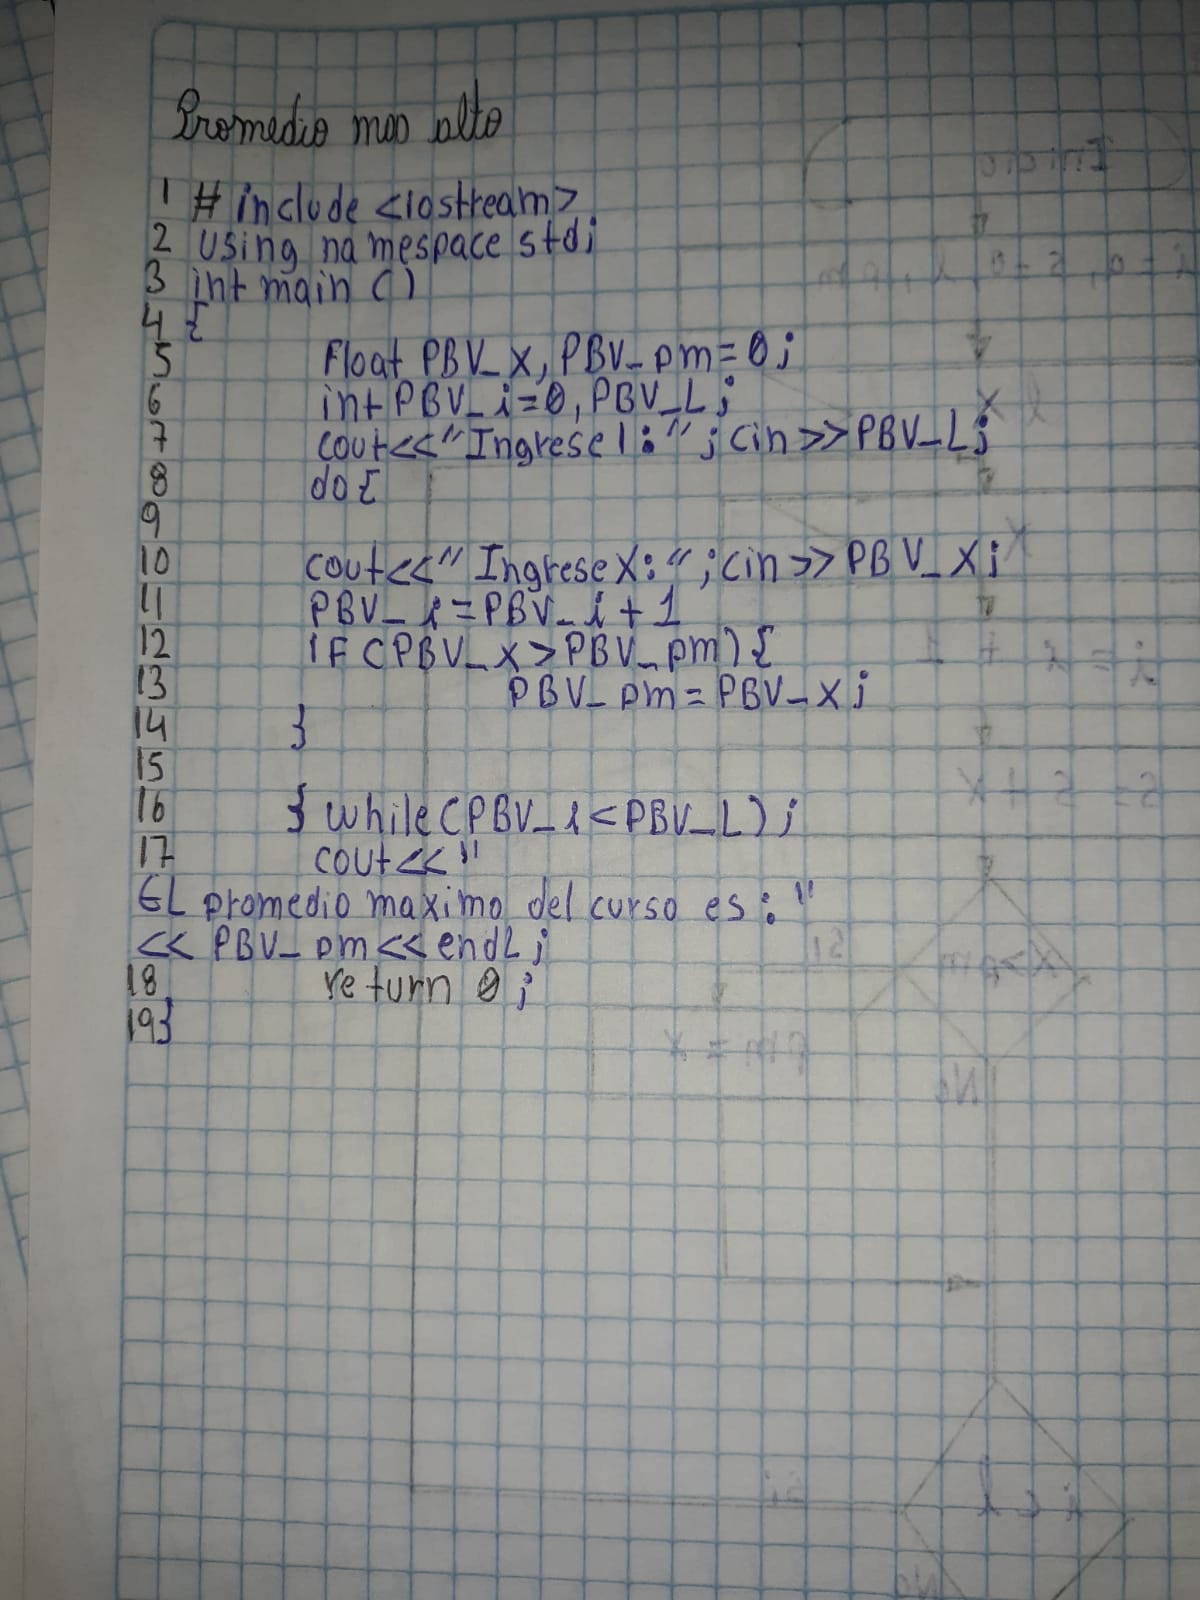 Promedio mas alto
1 # include <iostream>
2 using namespace std;
3 int main ()
4 {
5 Float PBV_x, PBV_pm=0;
6 int PBV_i=0, PBV_L;
7 cout<<"Ingrese l:"; cin>>PBV_L;
8 do{
9
10 cout<<"Ingrese X:"; cin>>PBV_X;
11 PBV_i=PBV_i+1
12 IF (PBV_x>PBV_pm) {
13 PBV_pm=PBV_x;
14 }
15
16 } while (PBV_i<PBV_L);
17 cout<<"
EL promedio maximo del curso es:"
<< PBV_pm<<endl;
18 return 0;
19}
Inicio
i=0, s=0, l, pm
l x
x
i = i + 1
s= s +x
x>pm
Si
pm = x
No
i < l
Si
No